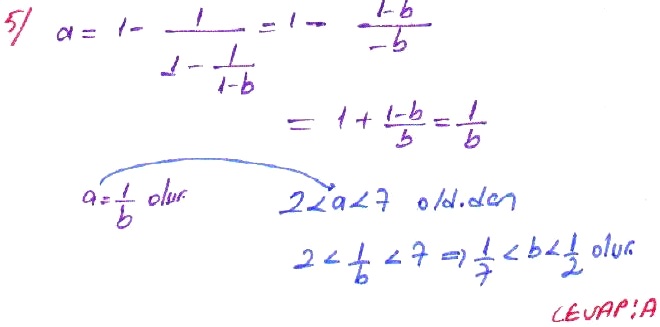 5/ a = 1 - 1/(1 - 1/(1-b)) = 1 - (1-b)/(-b)
= 1 + (1-b)/b = 1/b
a = 1/b olur. 2<a<7 old.dan
2 < 1/b < 7 ⇒ 1/7 < b < 1/2 olur.
CEVAP:A